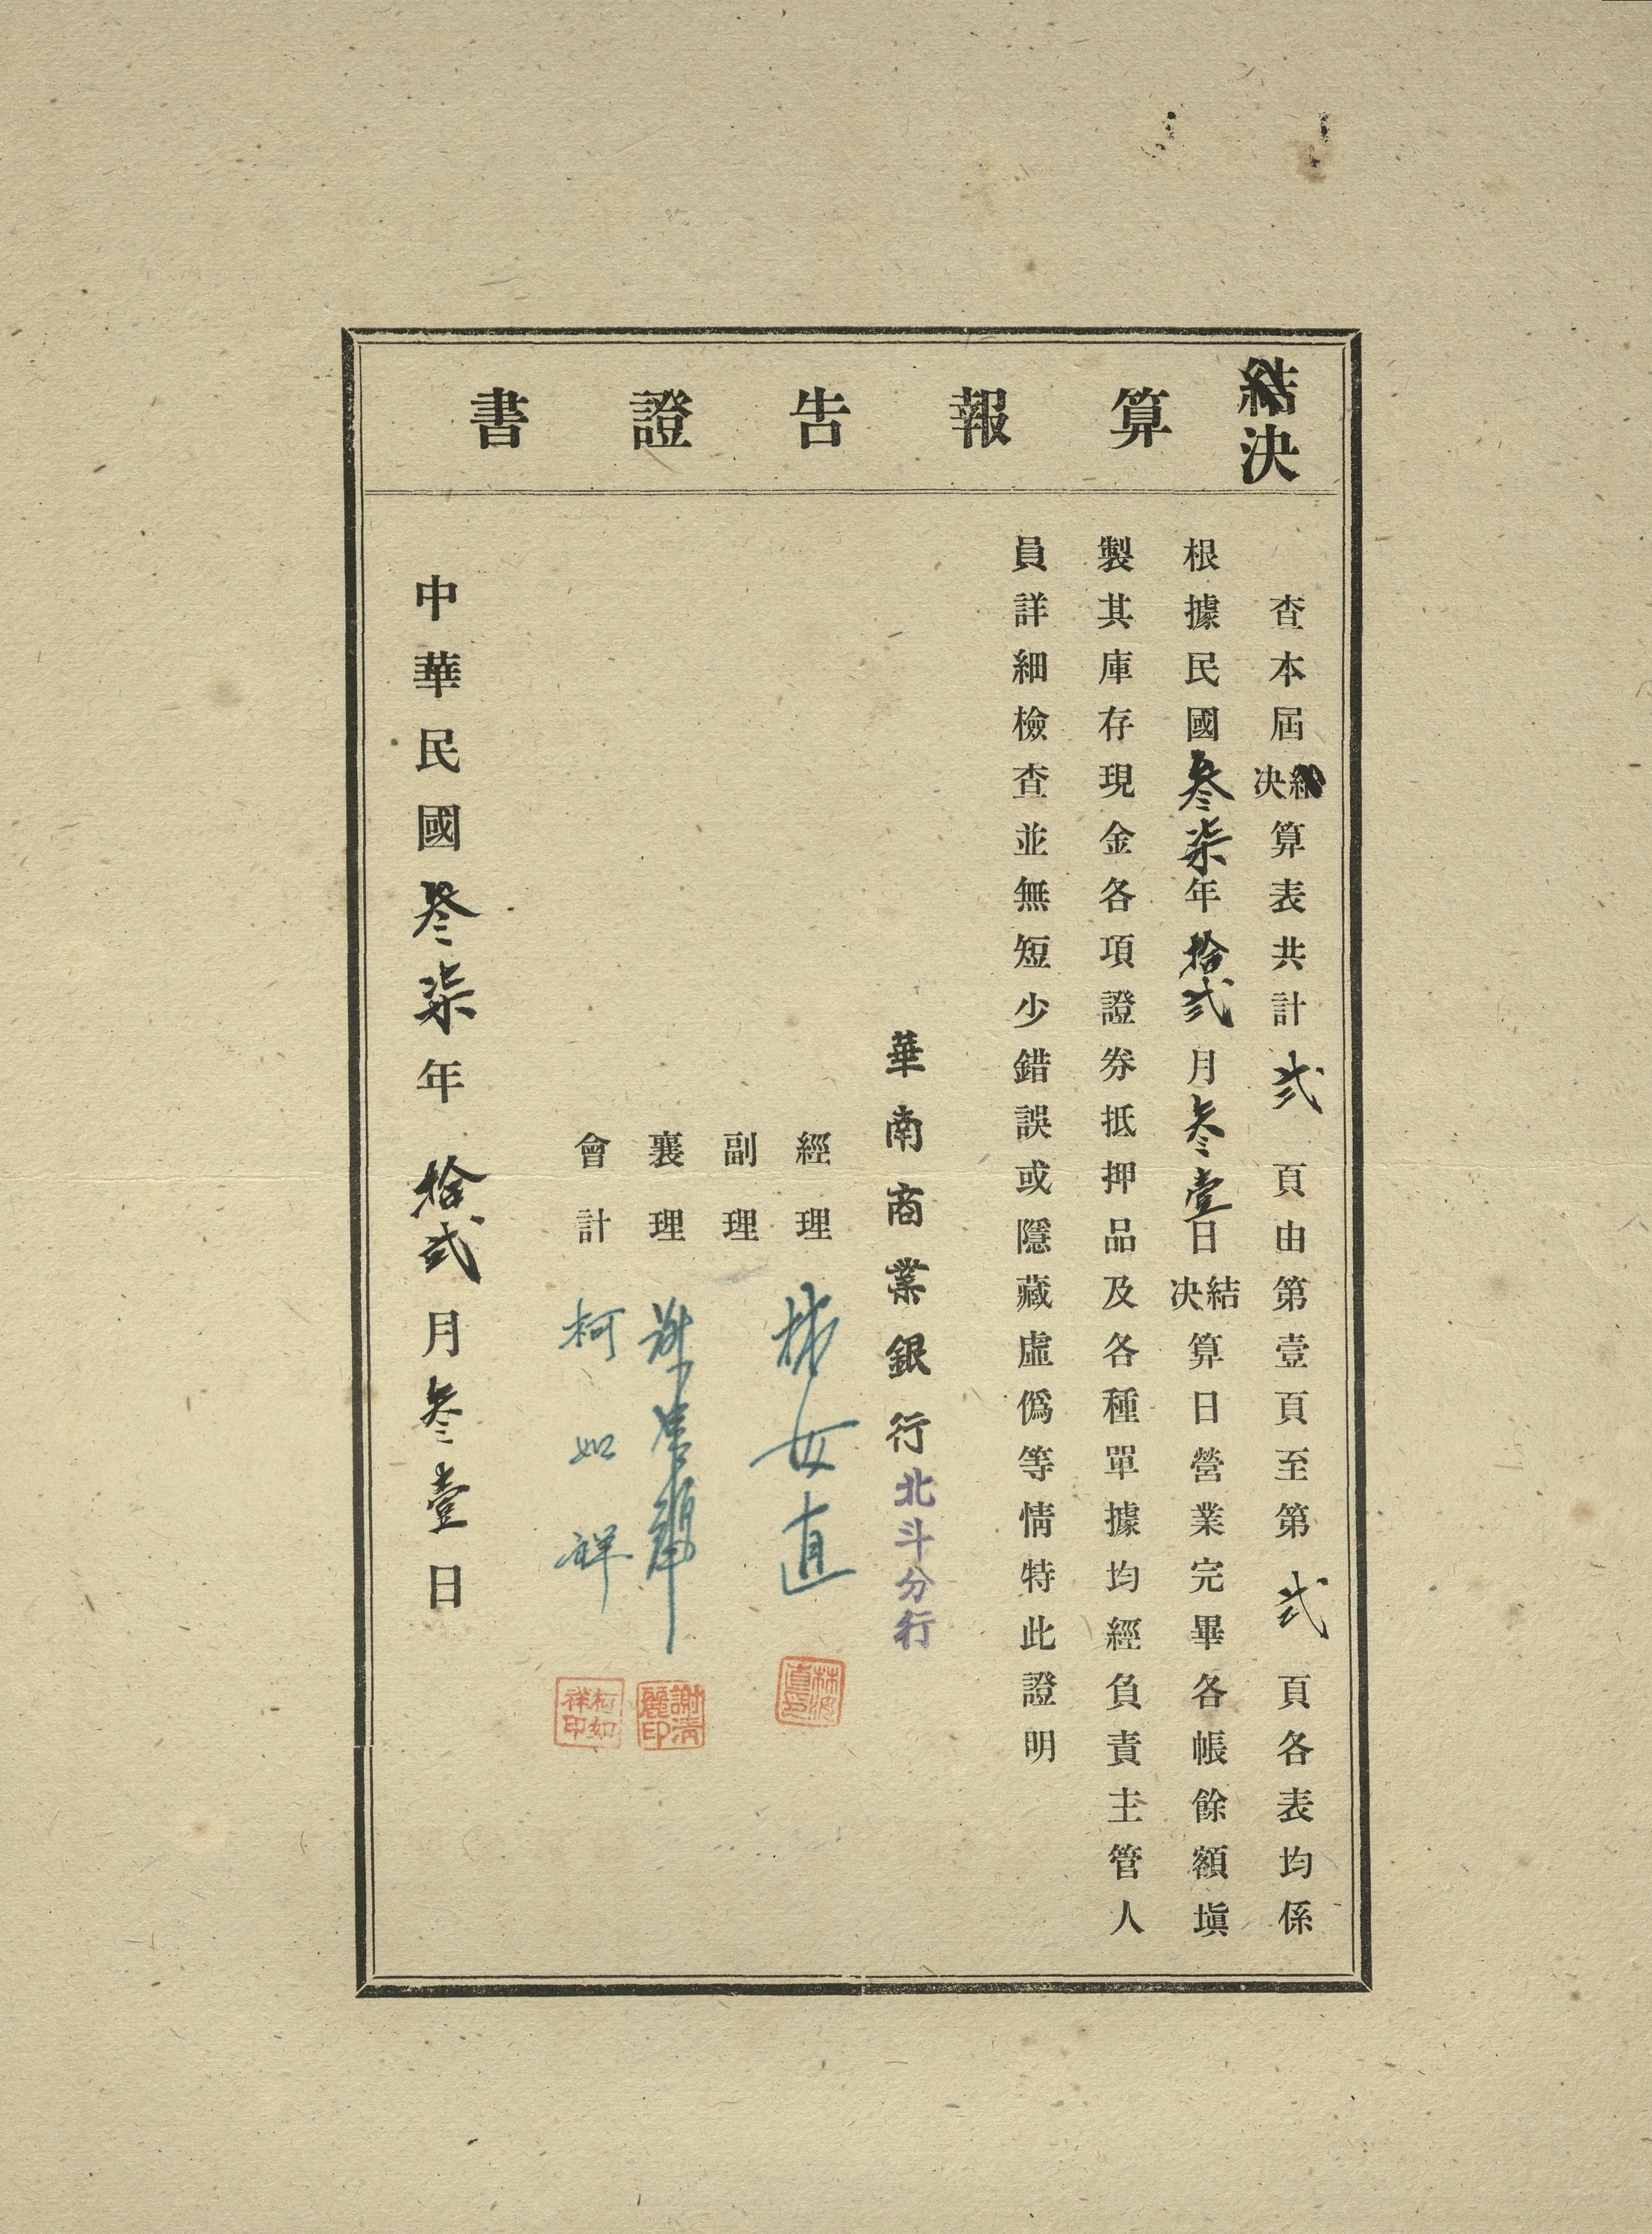 結決算報告證書
查本屆結決算表共計弍頁由第壹頁至第弍頁各表均係
根據民國叁柒年拾弍月叁壹日結決算日營業完畢各帳餘額塡
製其庫存現金各項證券抵押品及各種單據均經負責主管人
員詳細檢查並無短少錯誤或隱藏虛僞等情特此證明
華南商業銀行北斗分行
經理 林 直
副理
襄理 謝清麗
謝清麗印
會計 柯如祥
柯如祥印
中華民國叁柒年拾弍月叁壹日